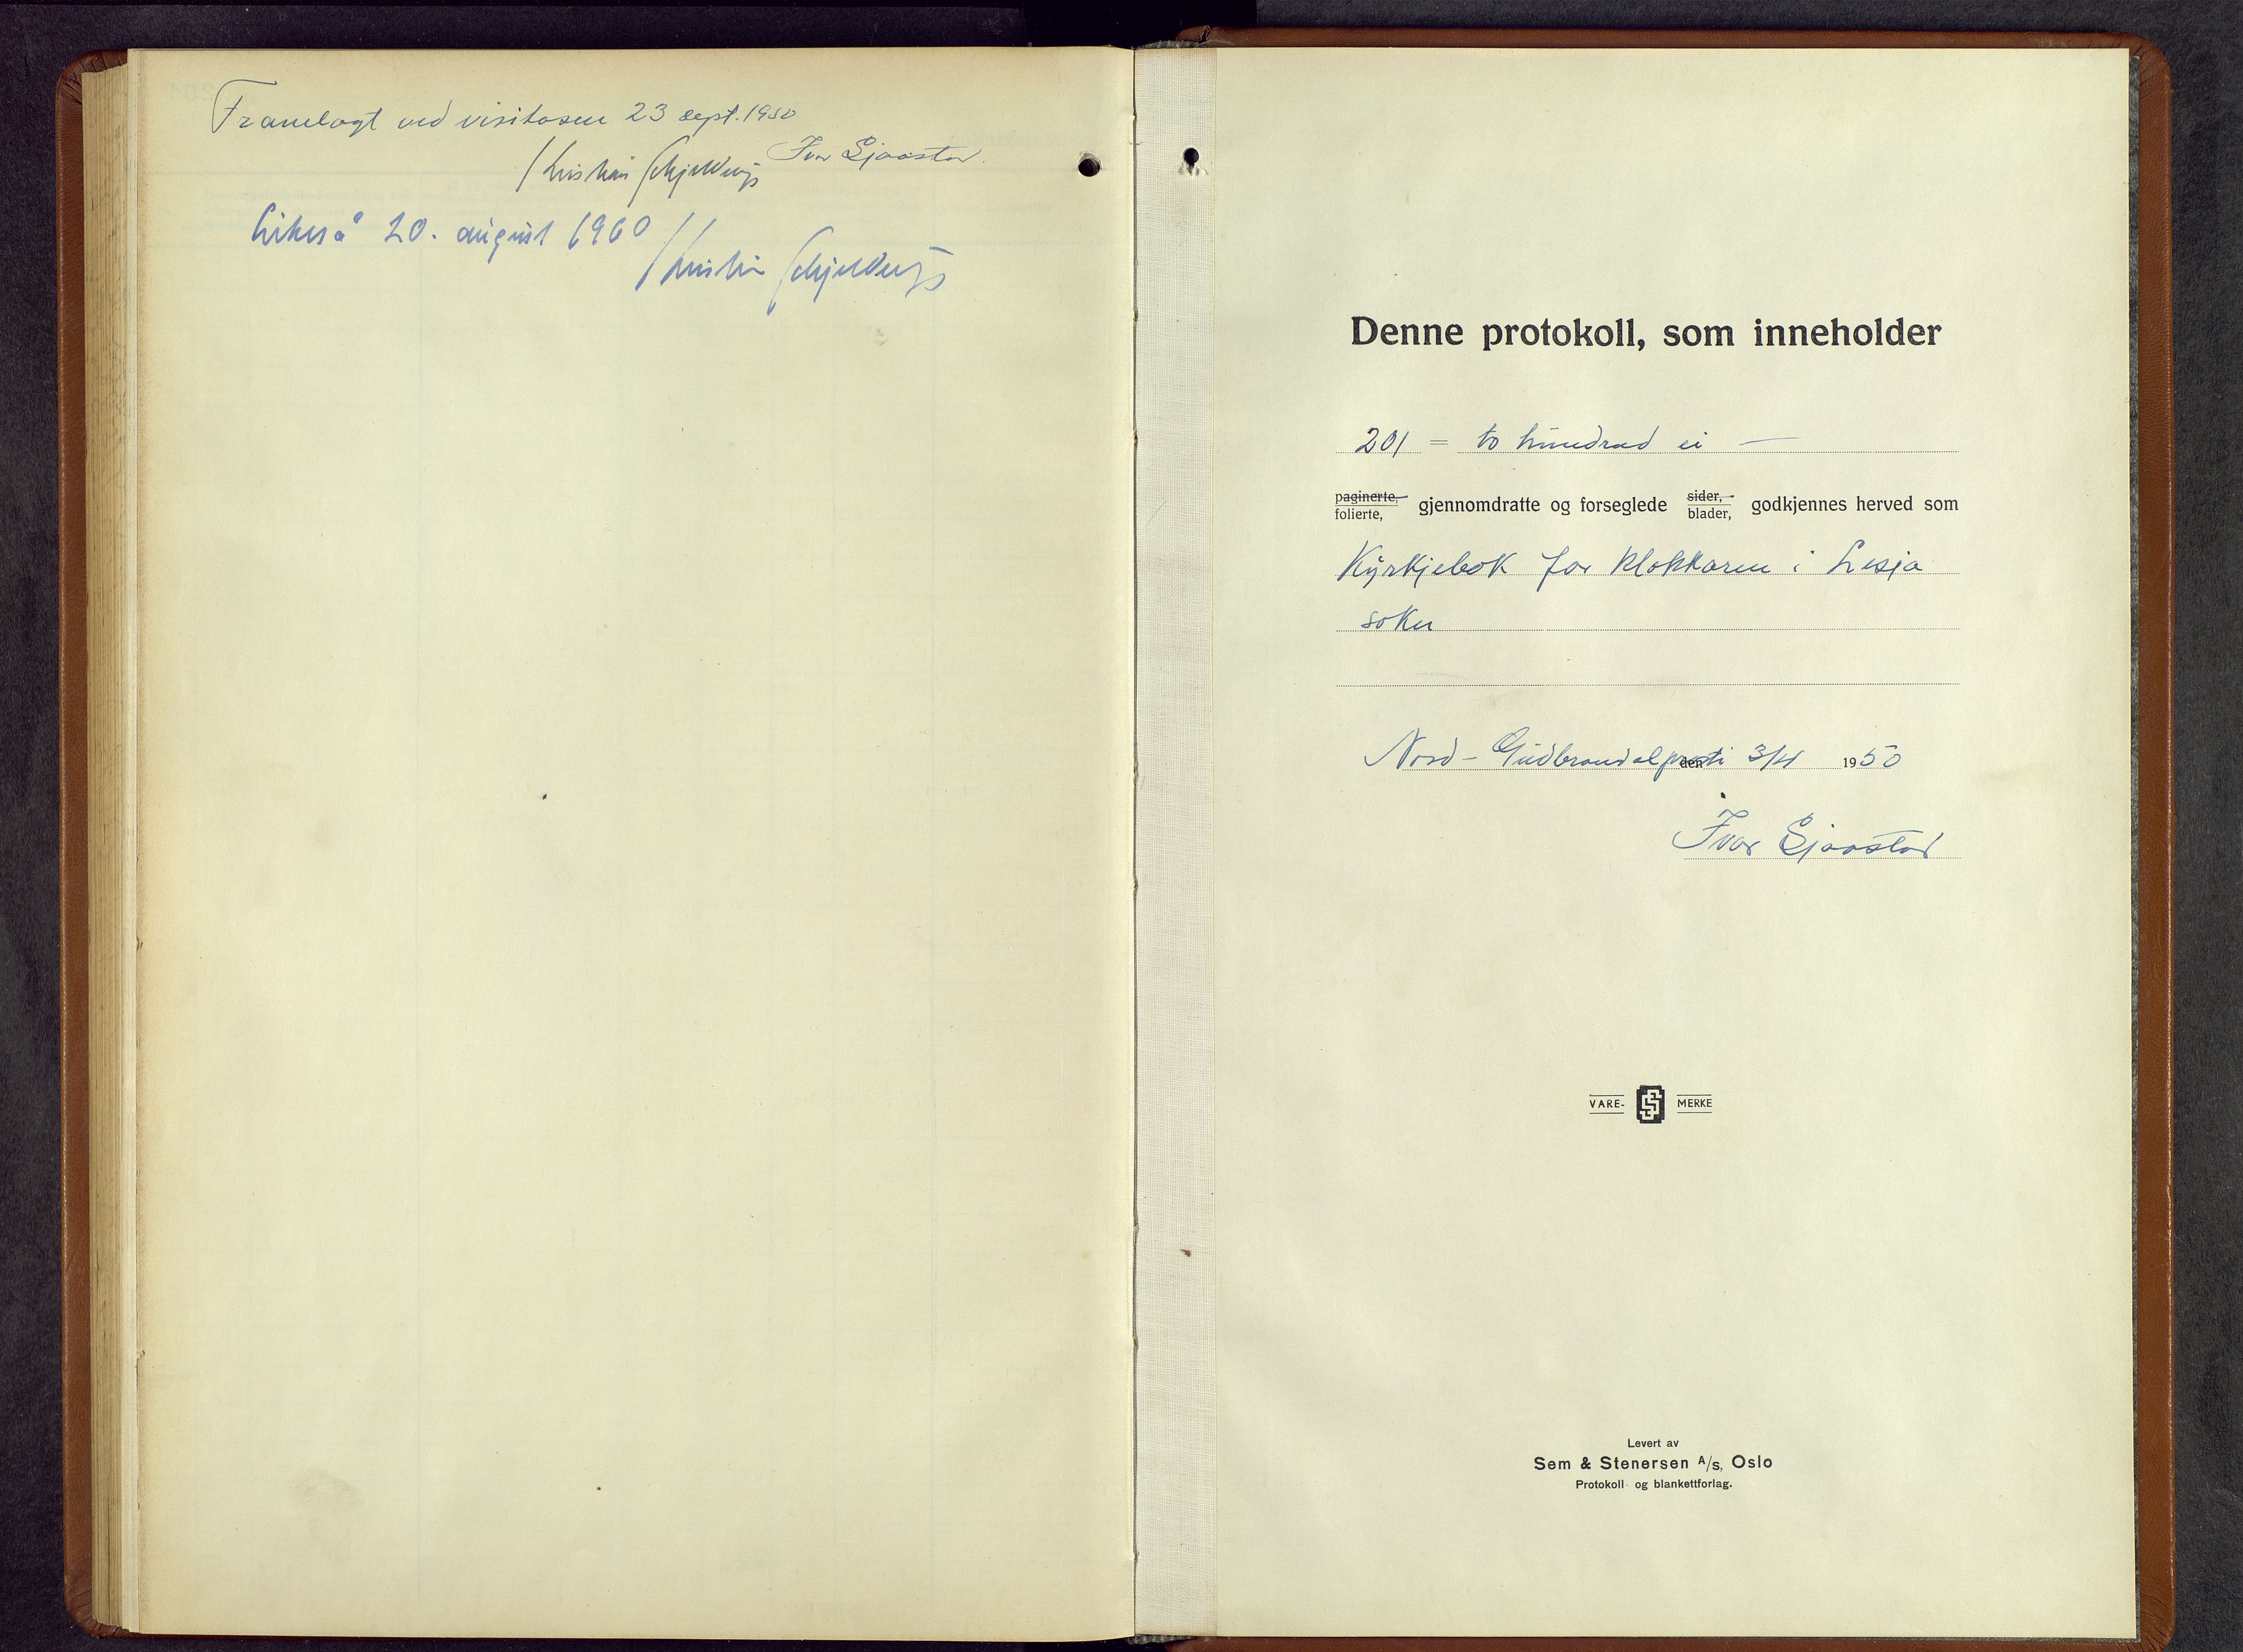 Framlagt ved visitasen 23 sept. 1950
Ivar Sjaastad.
Kristian Schjelderup
Likeså 20. august 1960
Kristian Schjelderup
Denne protokoll, som inneholder
201 = to hundrad ei —
paginerte,
folierte, gjennomdratte og forseglede sider,
blader, godkjennes herved som
Kyrkjebok for klokkaren i Lesja
sokn
Nord-Gudbrandsdal prosti den 3/4 1950
Ivar Sjaastad
VARE- SS MERKE
Levert av
Sem & Stenersen A/s, Oslo
Protokoll- og blankettforlag.